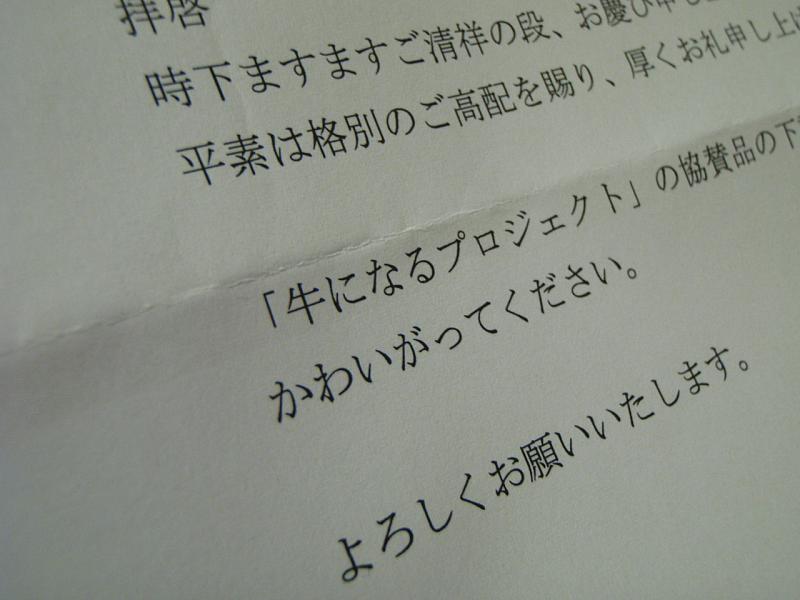 拝啓
時下ますますご清祥の段、お慶び申し上
平素は格別のご高配を賜り、厚くお礼申し上げ
「牛になるプロジェクト」の協賛品の下
かわいがってください。
よろしくお願いいたします。